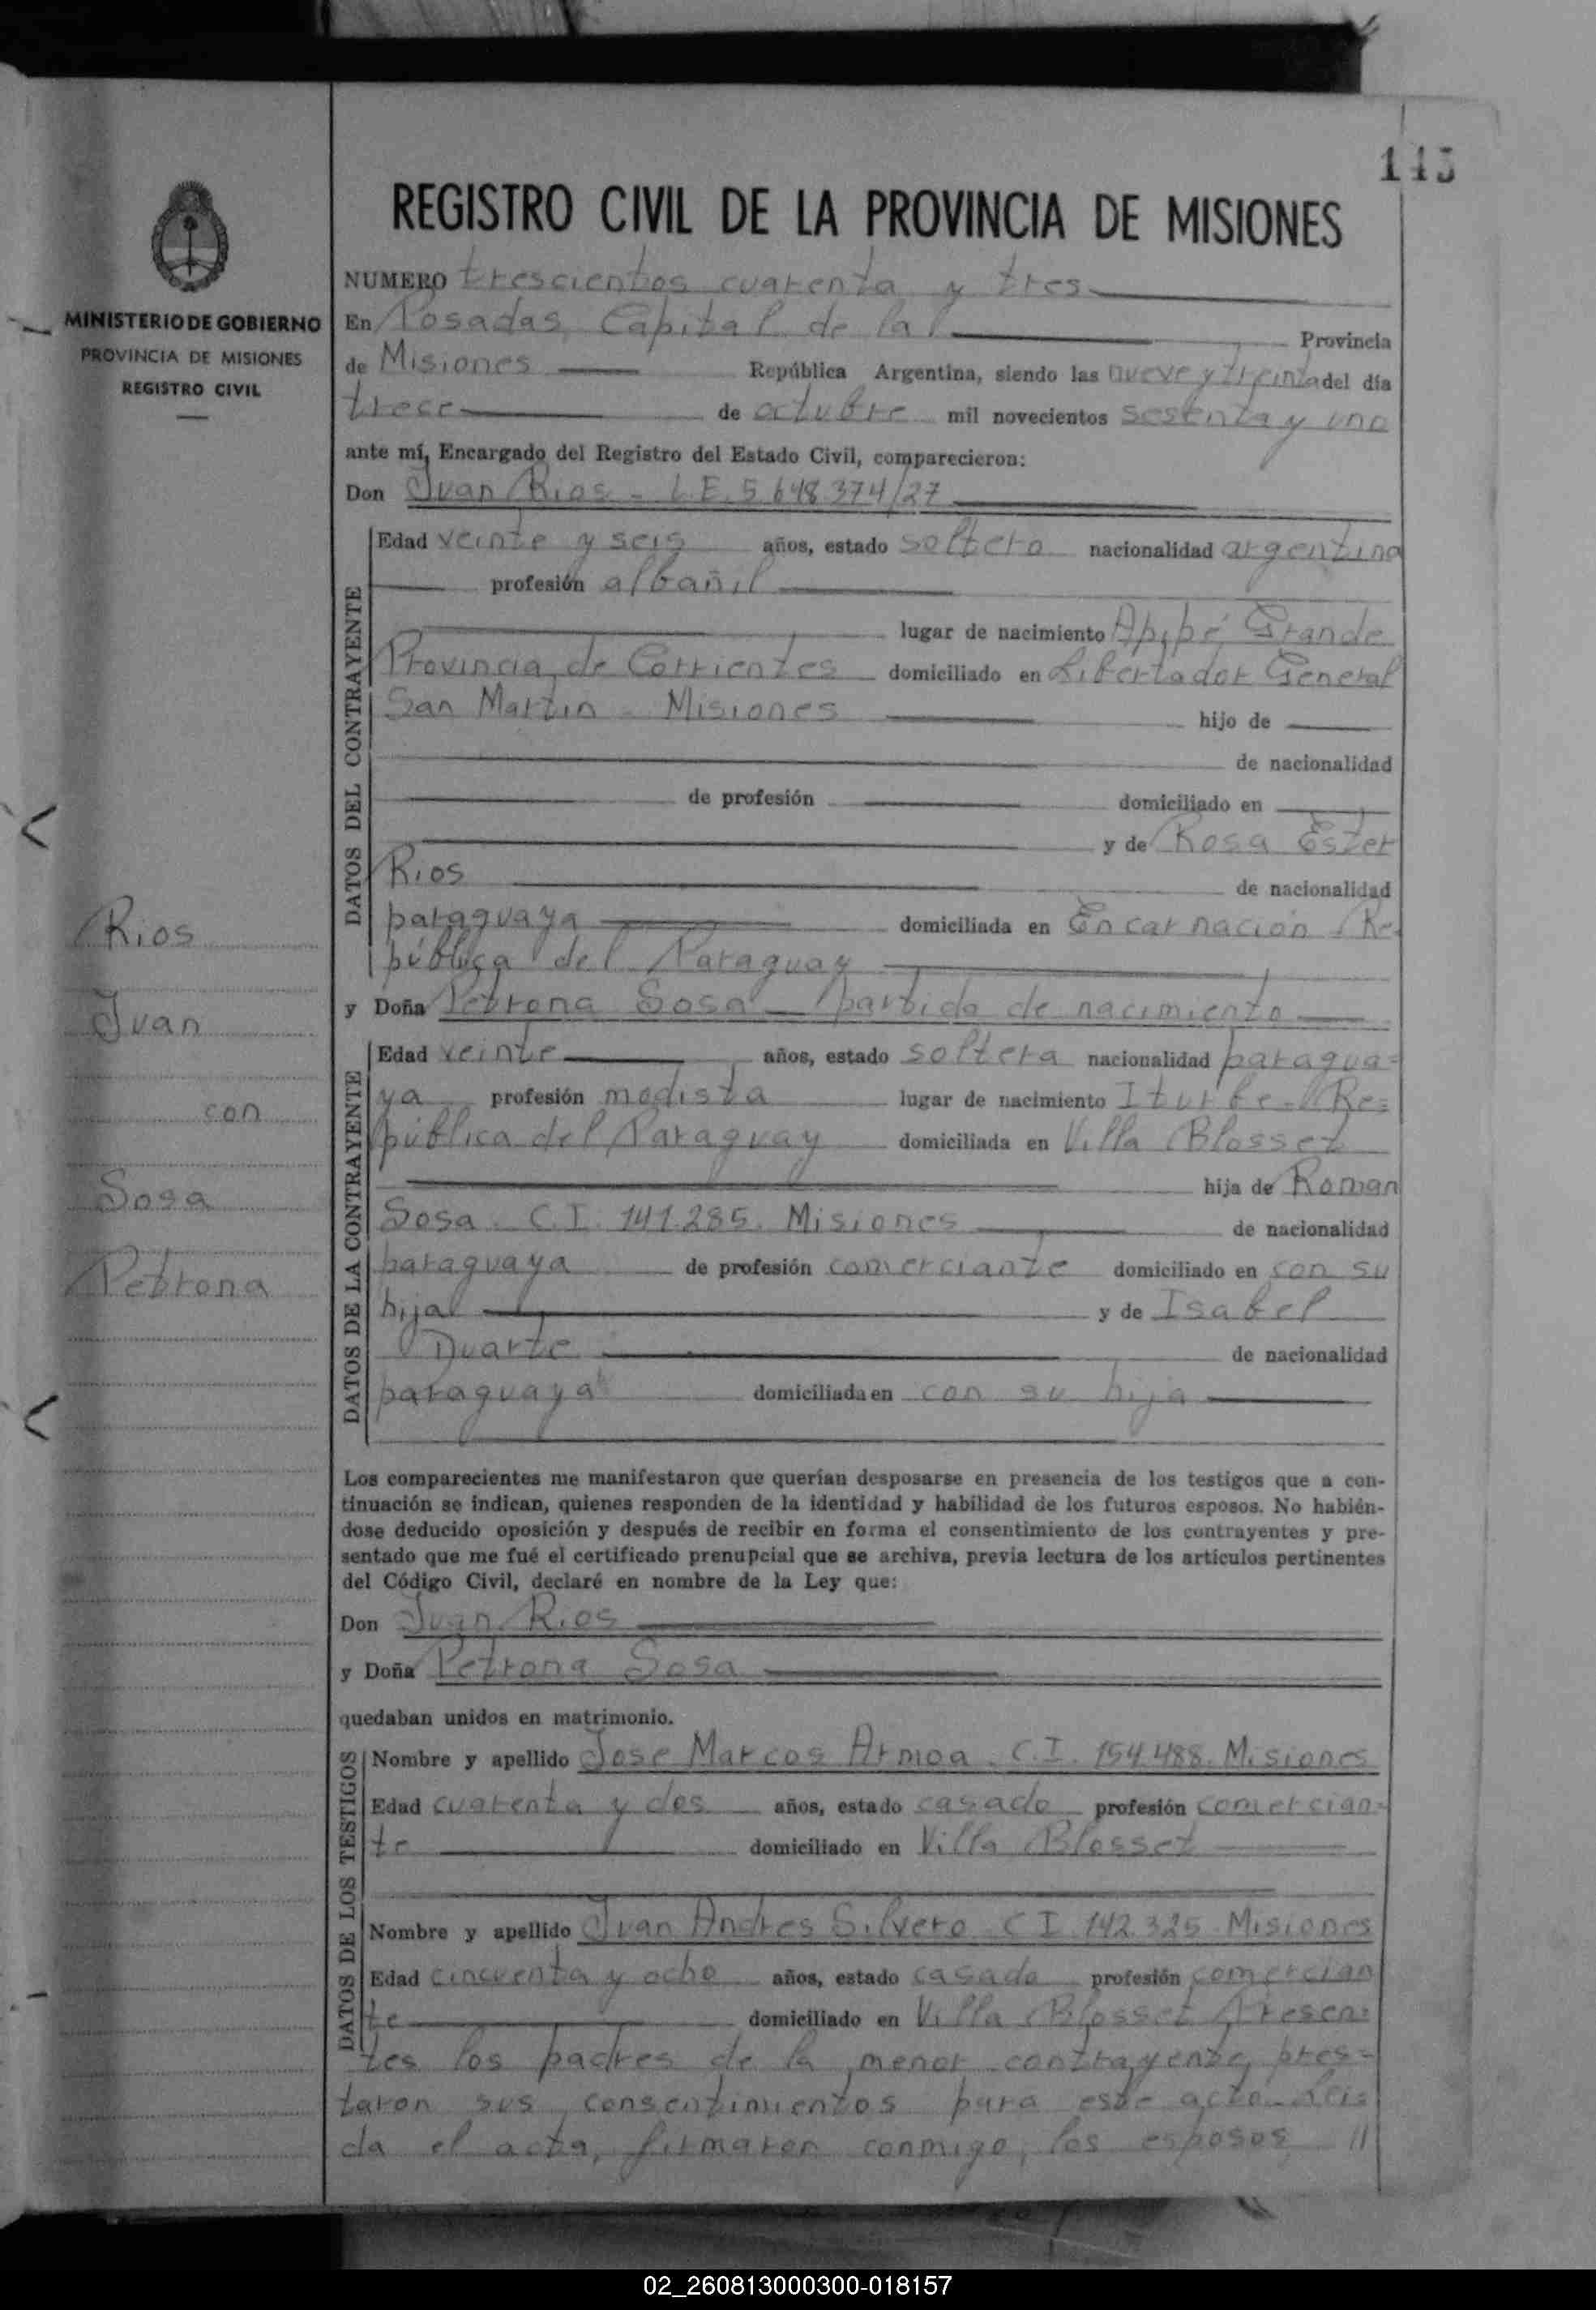 145
REGISTRO CIVIL DE LA PROVINCIA DE MISIONES
MINISTERIO DE GOBIERNO
PROVINCIA DE MISIONES
REGISTRO CIVIL
NUMERO trescientos cuarenta y tres
En Posadas, Capital de la Provincia
de Misiones República Argentina, siendo las nueve y treinta del día
trece de octubre mil novecientos sesenta y uno
ante mí, Encargado del Registro del Estado Civil, comparecieron:
Don Juan Rios - L.E. 5.648.374/27
DATOS DEL CONTRAYENTE
Edad veinte y seis años, estado soltero nacionalidad argentina
profesión albañil
lugar de nacimiento Apipé Grande
Provincia de Corrientes domiciliado en Libertador General
San Martin - Misiones hijo de
de nacionalidad
de profesión domiciliado en
y de Rosa Ester
Rios de nacionalidad
paraguaya domiciliada en Encarnación - Re-
pública del Paraguay
y Doña Petrona Sosa - partida de nacimiento
DATOS DE LA CONTRAYENTE
Edad veinte años, estado soltera nacionalidad paragua=
ya profesión modista lugar de nacimiento Iturbe - Re=
pública del Paraguay domiciliada en Villa Blosset
hija de Roman
Sosa - C.I. 141.285. Misiones de nacionalidad
paraguaya de profesión comerciante domiciliado en con su
hija y de Isabel
Duarte de nacionalidad
paraguaya domiciliada en con su hija
Rios
Juan
con
Sosa
Petrona
Los comparecientes me manifestaron que querían desposarse en presencia de los testigos que a con-
tinuación se indican, quienes responden de la identidad y habilidad de los futuros esposos. No habién-
dose deducido oposición y después de recibir en forma el consentimiento de los contrayentes y pre-
sentado que me fué el certificado prenupcial que se archiva, previa lectura de los artículos pertinentes
del Código Civil, declaré en nombre de la Ley que:
Don Juan Rios
y Doña Petrona Sosa
quedaban unidos en matrimonio.
DATOS DE LOS TESTIGOS
Nombre y apellido Jose Marcos Armoa - C.I. 154.488. Misiones
Edad cuarenta y dos años, estado casado profesión comercian=
te domiciliado en Villa Blosset
Nombre y apellido Juan Andres Silvero C I 142.325 - Misiones
Edad cincuenta y ocho años, estado casado profesión comercian
te domiciliado en Villa Blosset Presen=
tes los padres de la menor contrayente, pres=
taron sus consentimientos para este acto. Lei=
da el acta, firmaron conmigo, los esposos //
02_260813000300-018157